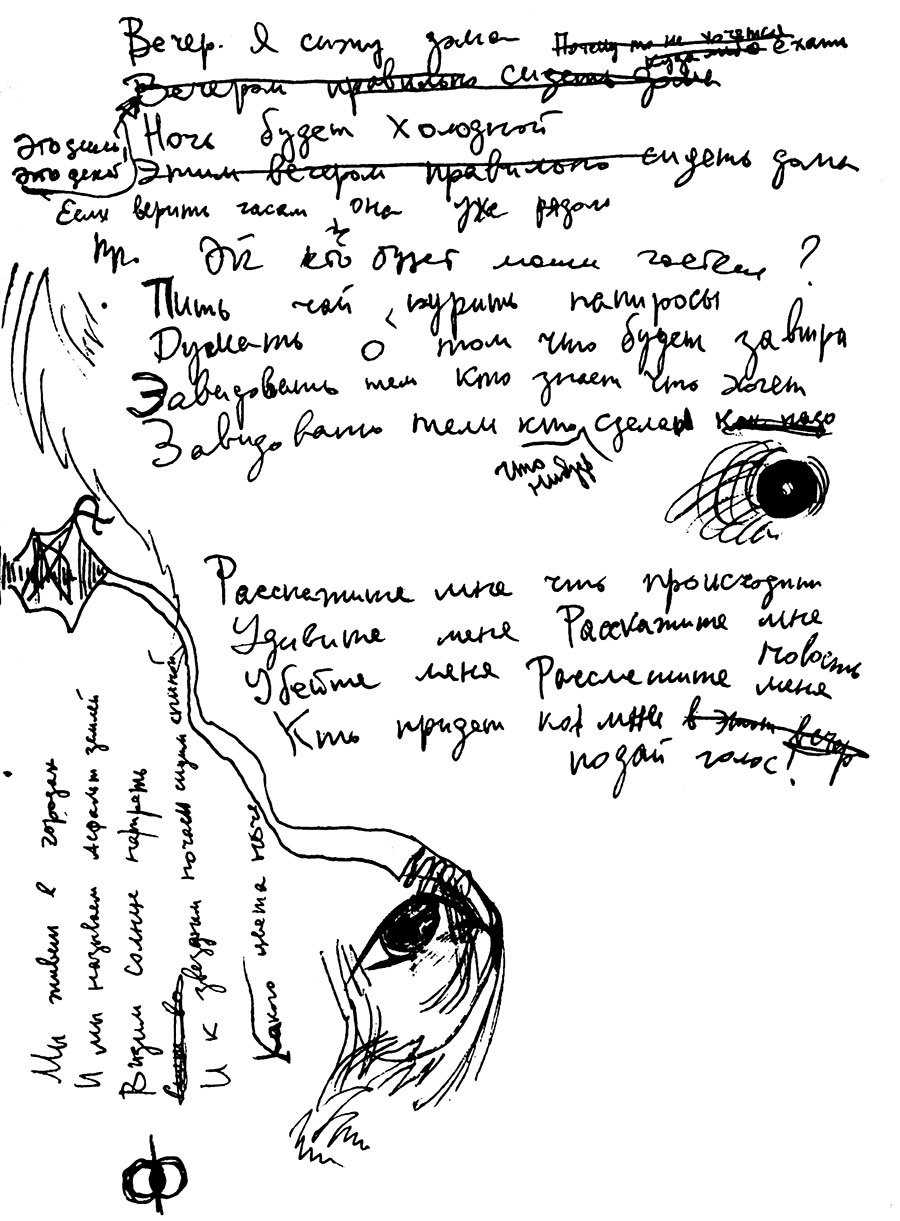 Вечер. Я сижу дома
Почему то не хочется
куда либо ехать
Вечером правильно сидеть дома
Ночь будет холодной
Это зима
Это декаб
Этим вечером правильно сидеть дома
Если верить часам она уже рядом
Пр. Эй кто будет моим гостем?
Пить чай курить папиросы
Думать о том что будет завтра
Завидовать тем кто знает что хочет
Завидовать тем кто сделал как надо
что нибудь
Расскажите мне что происходит
Удивите меня Расскажите мне
новость
Убейте меня Рассмешите меня
Кто придет ко мне в этот вечер
подай голос!
Мы живем в городах
И мы называем асфальт землей
Видим солнце
И к звездным ночам сидим спиной
Какого цвета ночь